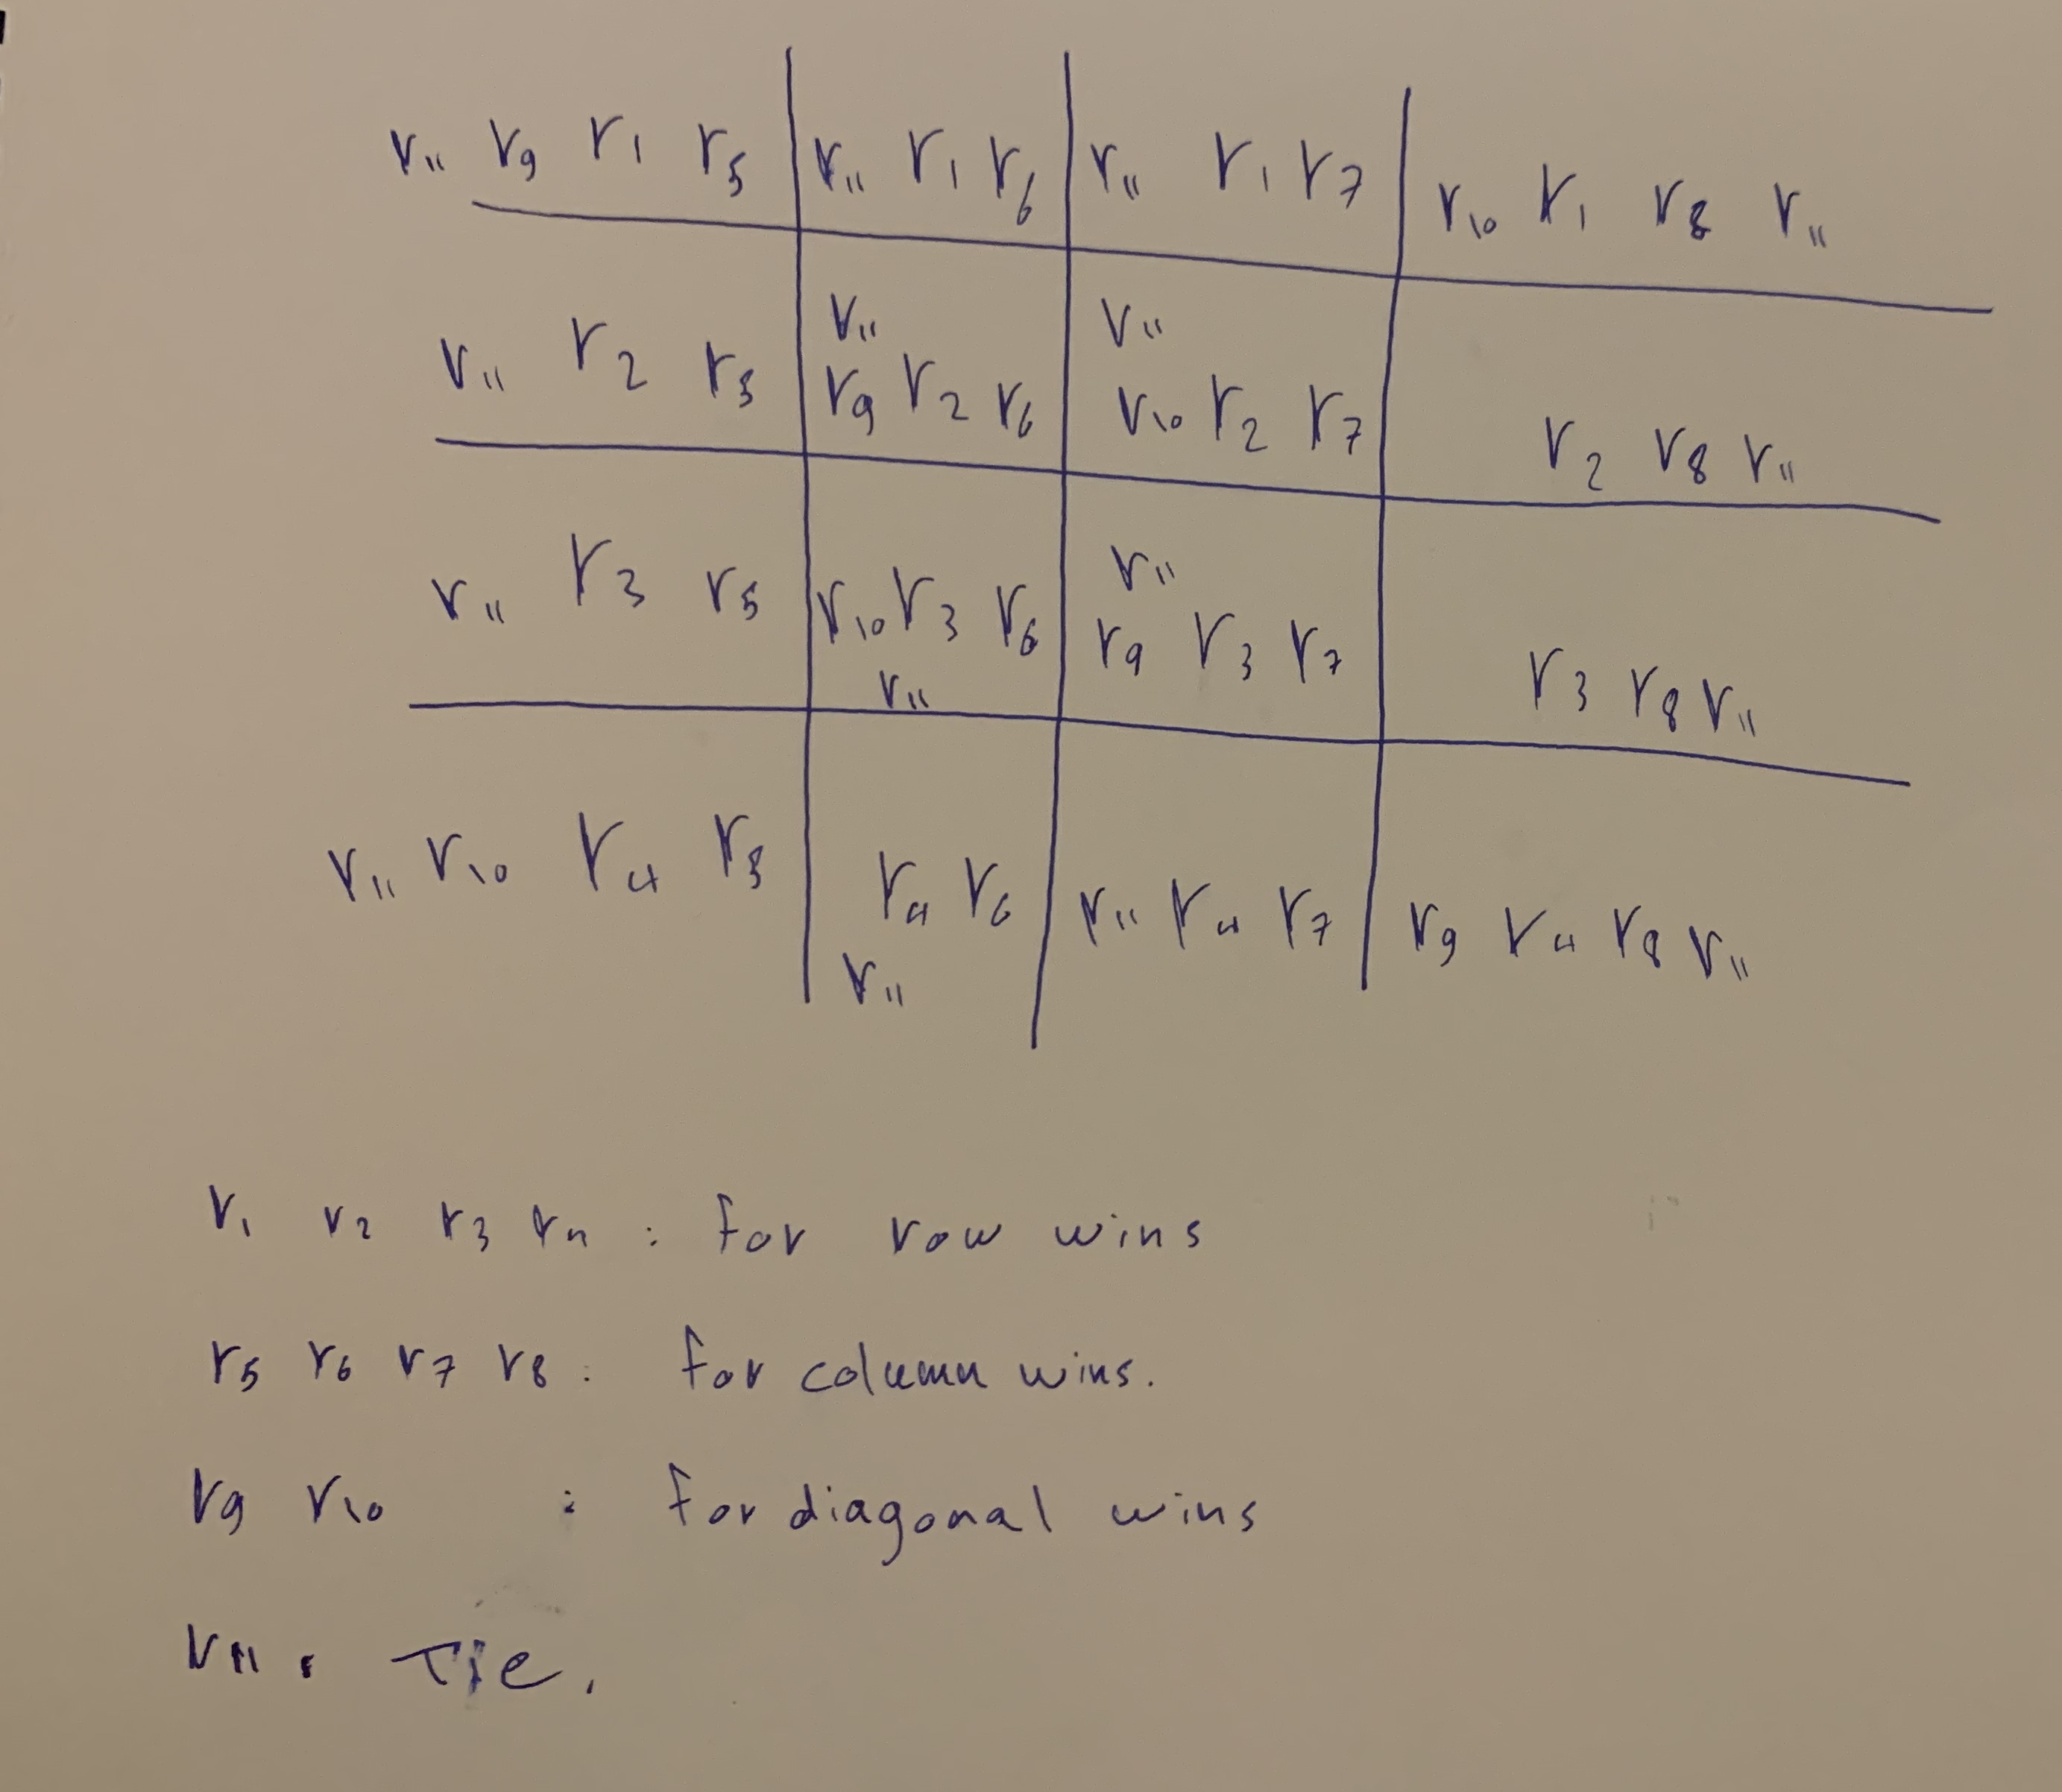 r11 r9 r1 r5 r11 r1 r6 r11 r1 r7 r10 r1 r8 r11
r11 r2 r5 r11 r9 r2 r6 r11 r10 r2 r7 r2 r8 r11
r11 r3 r5 r10 r3 r6 r11 r11 r9 r3 r7 r3 r8 r11
r11 r10 r4 r5 r4 r6 r11 r11 r4 r7 r9 r4 r8 r11
r1 r2 r3 r4 : for row wins
r5 r6 r7 r8 : for column wins.
r9 r10 : for diagonal wins
r11 : Tie.